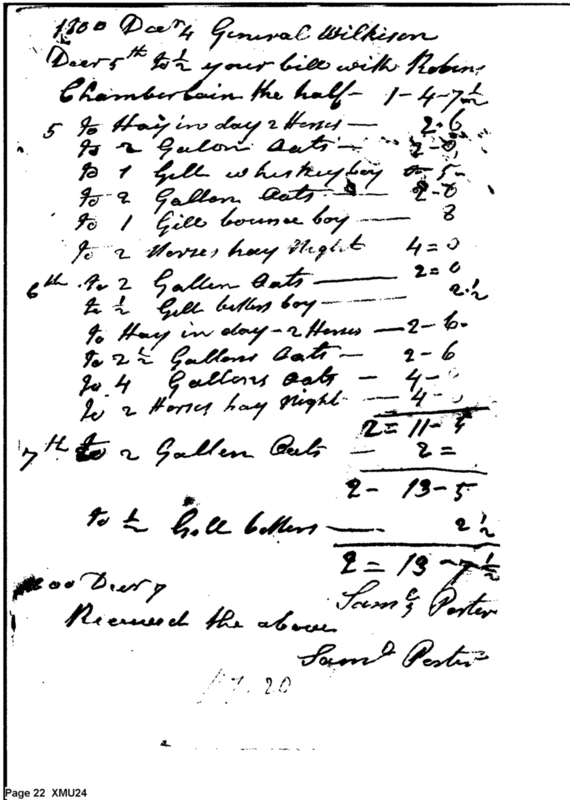 1800 Decr 4 General Wilkison
Decr 5th to ½ your bill with Robins
Chamberlain the half - 1-4-7½
5 to Hay in day 2 Horses — 2-6
to 2 Galon Oats — 2-0
to 1 Gill whiskey boy 5-
to 2 Gallon Oats — 2-0
to 1 Gill bounce boy — 8
to 2 Horses hay Night 4=0
6th to 2 Gallen Oats — 2=0
to ½ Gill bitters boy — 2½
to Hay in day - 2 Horses — 2-6
to 2½ Gallons Oats — 2-6
to 4 Gallons Oats — 4-
to 2 Horses hay Night — 4-
2=11-5
7th to 2 Gallen Oats — 2=
2- 13-5
to ½ Gill bitters — 2½
2=13-7½
00 Decr 7
Saml Porter
Received the above
Saml Porter
17.20
Page 22 XMU24